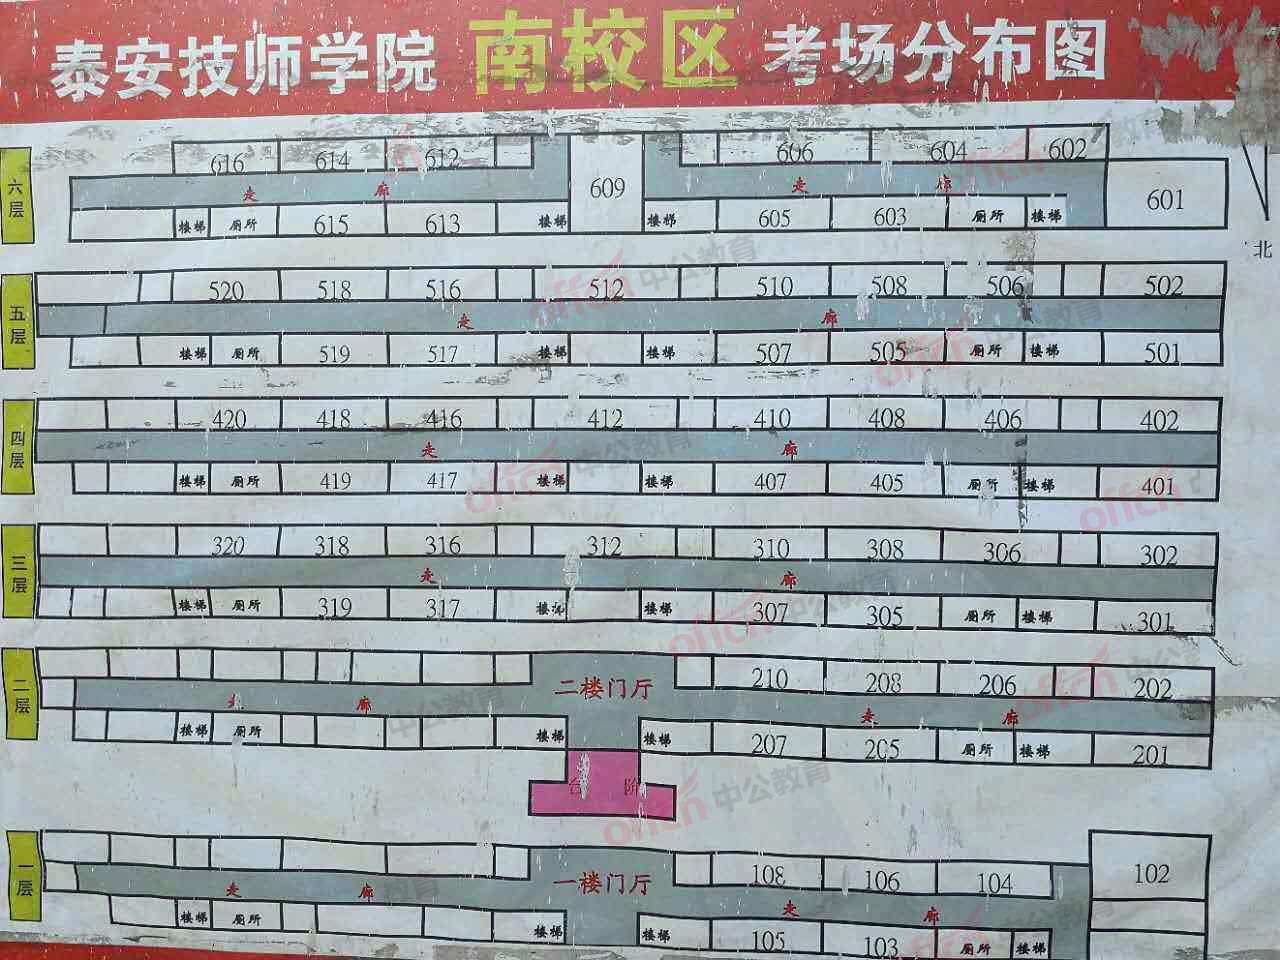 泰安技师学院 南校区 考场分布图
北
六层
616 614 612 606 604 602
走 廊 609 走 廊 601
楼梯 厕所 615 613 楼梯 楼梯 605 603 厕所 楼梯
五层
520 518 516 512 510 508 506 502
走 廊
楼梯 厕所 519 517 楼梯 楼梯 507 505 厕所 楼梯 501
四层
420 418 416 412 410 408 406 402
走 廊
楼梯 厕所 419 417 楼梯 楼梯 407 405 厕所 楼梯 401
三层
320 318 316 312 310 308 306 302
走 廊
楼梯 厕所 319 317 楼梯 楼梯 307 305 厕所 楼梯 301
二层
二楼门厅 210 208 206 202
廊 走 廊
楼梯 厕所 楼梯 楼梯 207 205 厕所 楼梯 201
台 阶
一层
一楼门厅 108 106 104 102
走 廊 走 廊
楼梯 厕所 楼梯 楼梯 105 103 厕所 楼梯
offcn 中公教育